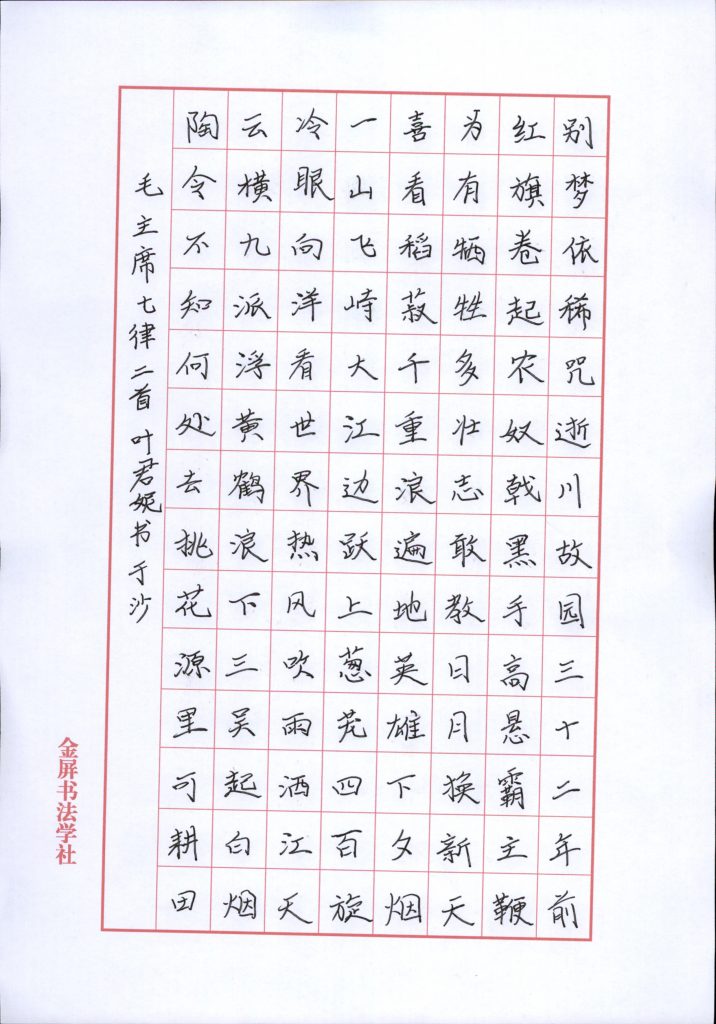 别梦依稀咒逝川故园三十二年前
红旗卷起农奴戟黑手高悬霸主鞭
为有牺牲多壮志敢教日月换新天
喜看稻菽千重浪遍地英雄下夕烟
一山飞峙大江边跃上葱茏四百旋
冷眼向洋看世界热风吹雨洒江天
云横九派浮黄鹤浪下三吴起白烟
陶令不知何处去挑花源里可耕田
毛主席七律二首 叶君妮书于沙
金屏书法学社